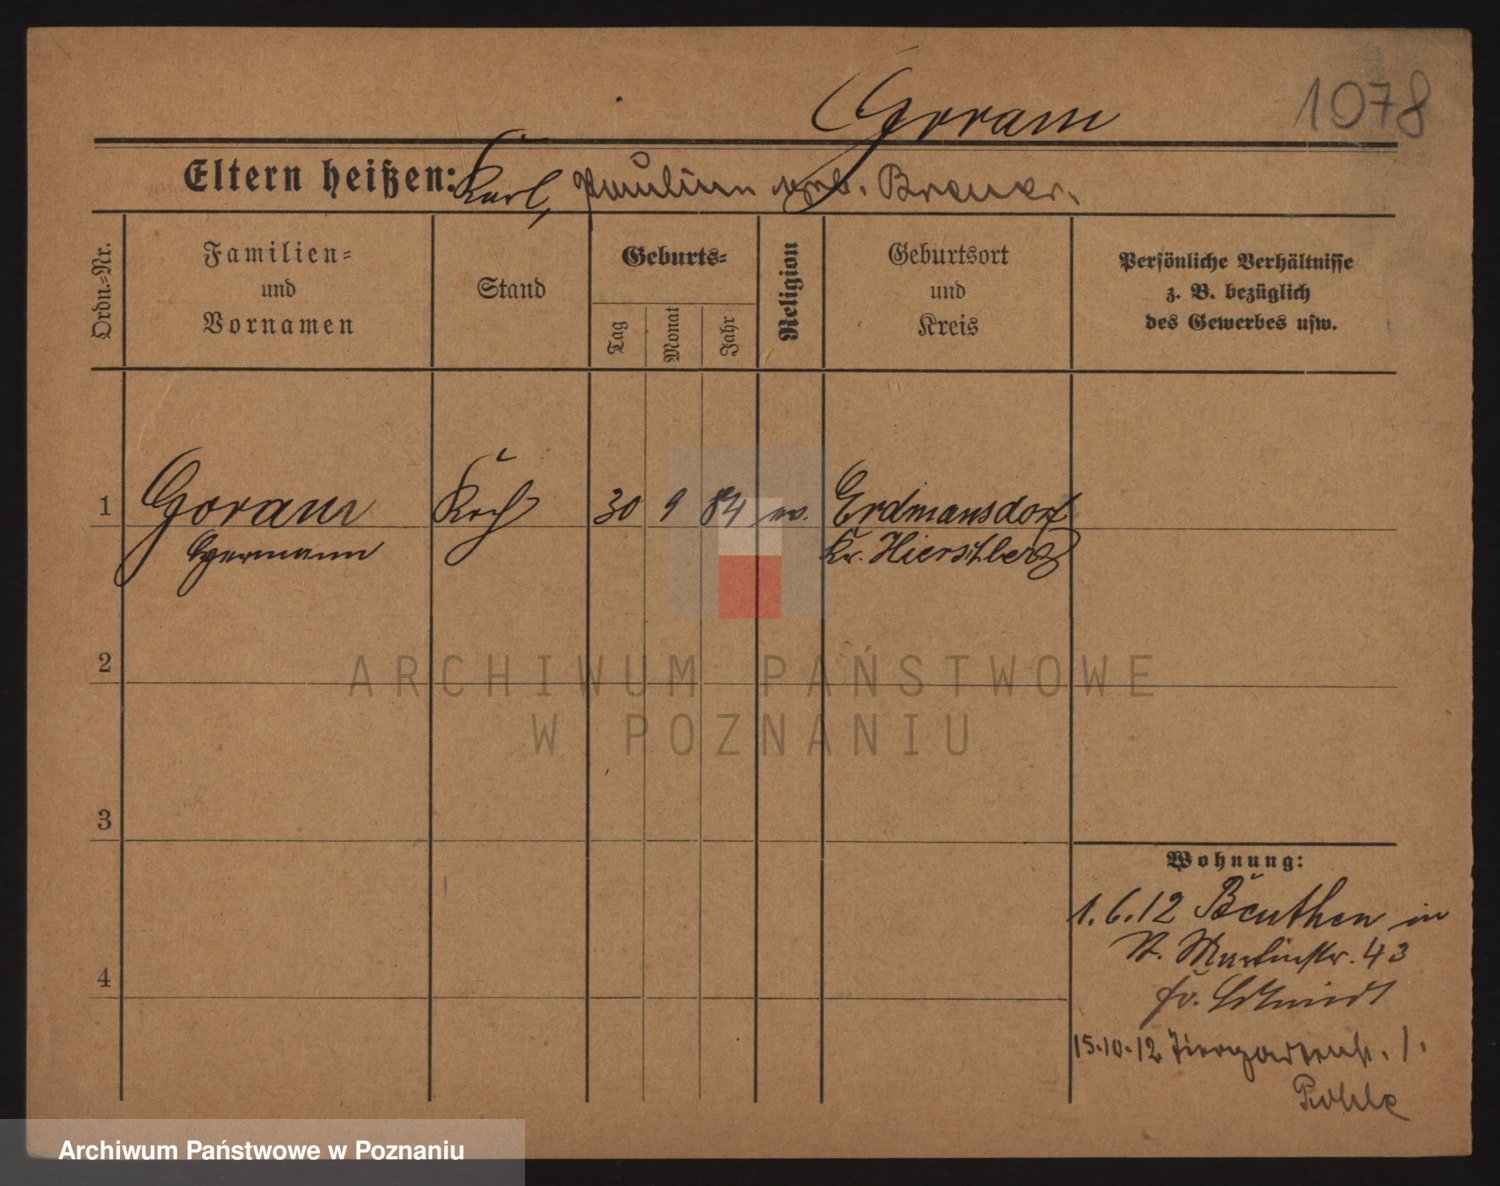 1078
Goram
Eltern heißen: Karl, Paulina geb. Brener.
Ordn.=Nr.
Familien=
und
Vornamen
Stand
Geburts=
Tag
Monat
Jahr
Religion
Geburtsort
und
Kreis
Persönliche Verhältnisse
z. B. bezüglich
des Gewerbes usw.
1 Goram Koch 30 9 84 ev. Erdmansdorf
Hermann Kr. Hierschberg
2
ARCHIWUM PAŃSTWOWE
W POZNANIU
3
4
Wohnung:
1.6.12 Beuthen in
St. Martinstr. 43
fr. Schmidt
15.10.12 Tiergartenstr. 1.
Rohle
Archiwum Państwowe w Poznaniu